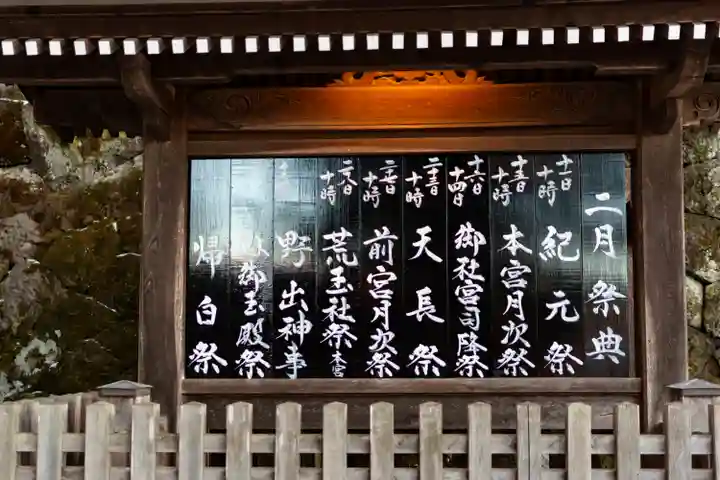 二月祭典
十一日 十時 紀元祭
十五日 十時 本宮月次祭
十六日 十四時 御社宮司降祭
二十三日 十時 天長祭
十時 前宮月次祭
二十八日 十時 荒玉社祭 本宮
野出神事
御玉殿祭
帰白祭